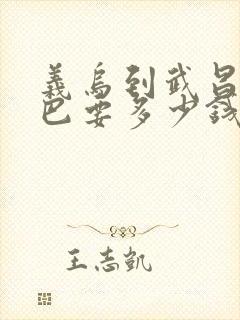 義烏到武昌
巴要多少錢
王志凱